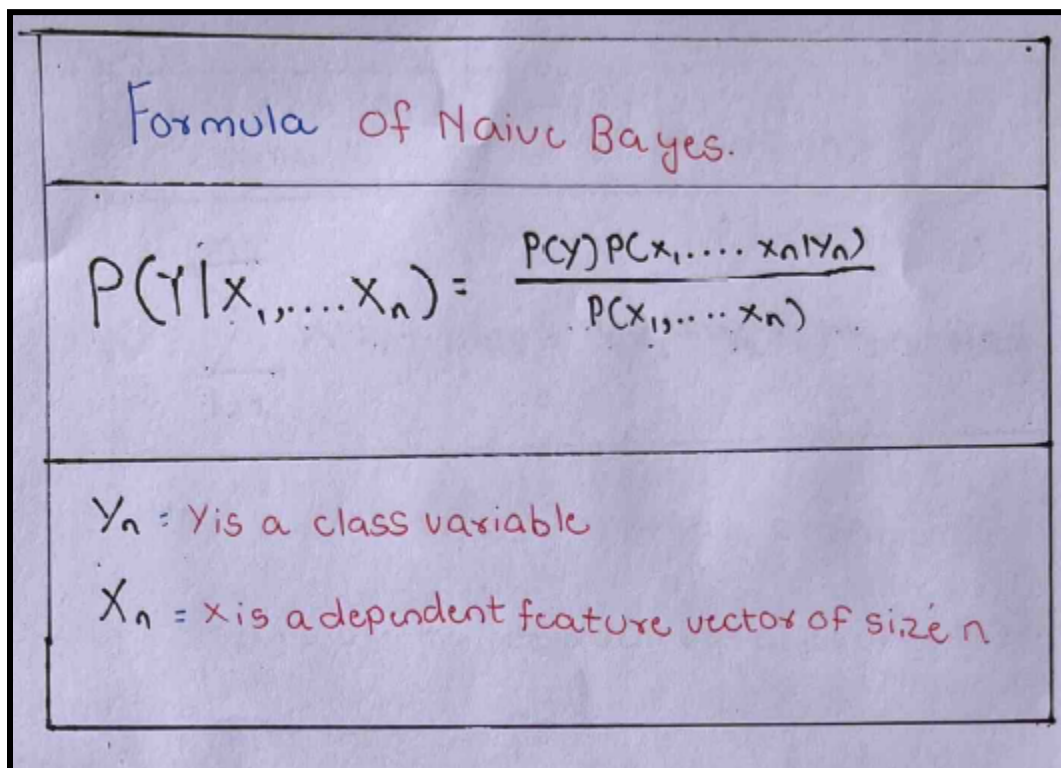 Formula of Naive Bayes.
P(Y|X₁,....Xₙ) = P(Y) P(X₁.... Xₙ|Yₙ) / P(X₁,.... Xₙ)
Yₙ = Y is a class variable
Xₙ = X is a dependent feature vector of size n